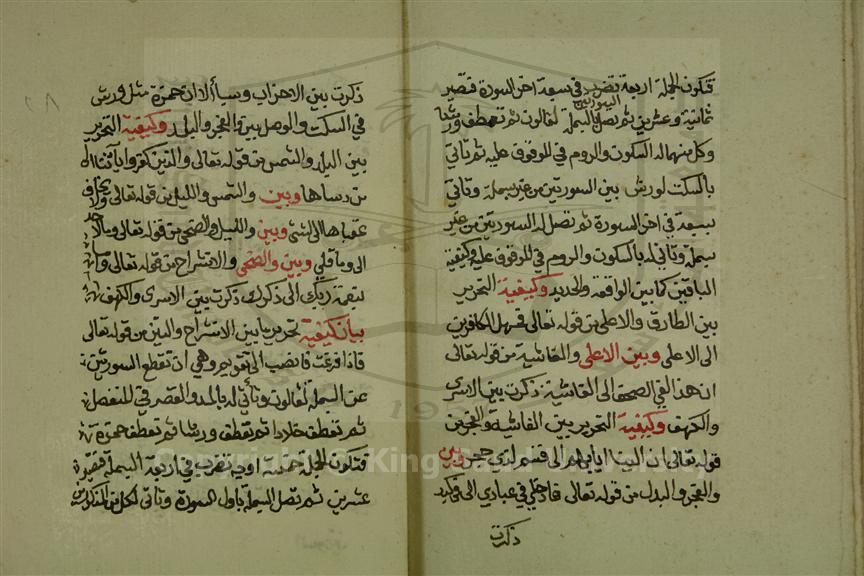 فتكون الجملة اربعة تضرب في تسعة اخر السورة فتصير
ثمانية وعشرين ثم تصل البسملة لقالون ثم تعطف ورشا
السورتين
وكل منهما له السكون والروم في الموقوف عليه ثم تاتي
بالسكت لورش بين السورتين من غير بسملة وتاتي
بسبعة في اخر السورة ثم تصل له السورتين من غير
بسملة وتاتي له بالسكون والروم في الموقوف عليه وكيفية
الباقين كما بين الواقعة والحديد وكيفية التحرير
بين الطارق والاعلى من قوله تعالى فمهل الكافرين
الى الاعلى وبين الاعلى والغاشية من قوله تعالى
ان هذا لفي الصحف الى الغاشية ذكرت بين الاسرى
والكهف وكيفية التحرير بين الغاشية والفجر من
قوله تعالى ان الينا ايابهم الى قسم لذي حجر وبين
والفجر والبلد من قوله تعالى فادخلي في عبادي الى في كبد
ذكرت
ذكرت بين الاحزاب وسبأ الا ان حمزة مثل ورش
في السكت والوصل بين والفجر والبلد وكيفية التحرير
بين البلد والشمس من قوله تعالى والذين كفروا بآياتنا الى
من دساها وبين والشمس والليل من قوله تعالى ولا يخاف
عقباها الى لشتى وبين والليل والضحى من قوله تعالى وما لاحد
الى وما قلى وبين والضحى والانشراح من قوله تعالى واما
بنعمة ربك الى ذكرك ذكرت بين الاسرى والكهف
بيان كيفية تحرير ما بين الانشراح والتين من قوله تعالى
فاذا فرغت فانصب الى تقويم وهي ان تقطع السورتين
عن البسملة لقالون وتأتي له بالمد والقصر في المنفصل
ثم تعطف خلادا ثم تعطف ورشا ثم تعطف حمزة
فتكون الجملة خمسة اوجه تضرب في اربعة البسملة فتصير
عشرين ثم تصل البسملة باول السورة وتاتي لكل من المذكورين